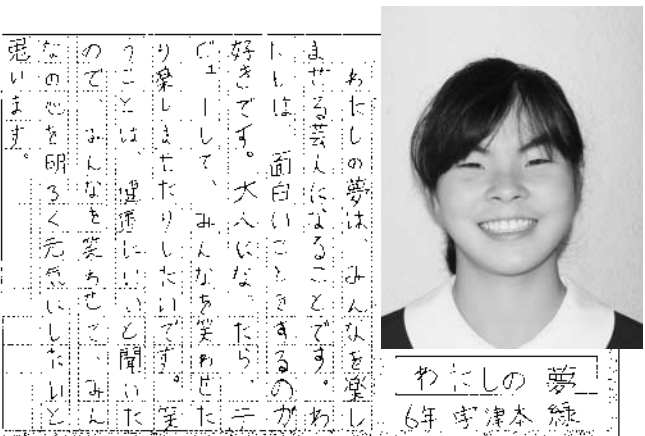 わたしの夢
6年 宇津本 緑
わたしの夢は、みんなを楽し
ませる芸人になることです。わ
たしは、面白いことをするのが
好きです。大人になったら、デ
ビューして、みんなを笑わせた
り楽しませたりしたいです。笑
うことは、健康にいいと聞いた
ので、みんなを笑わせて、みん
なの心を明るく元気にしたいと
思います。